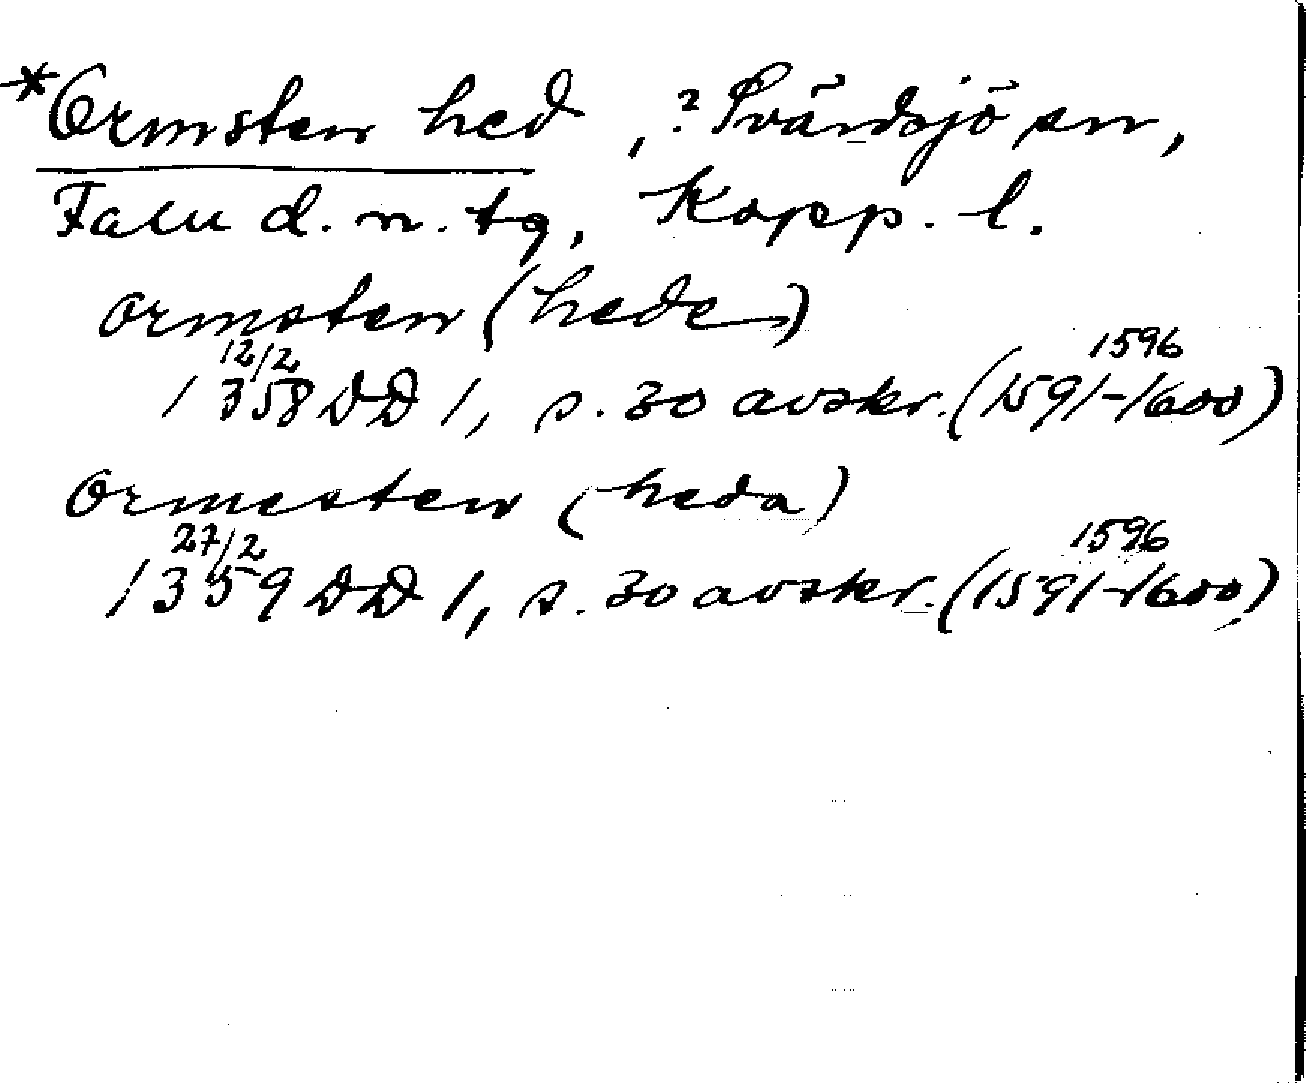 *Ormsten hed, ?Svärdsjö sn,
Falu d. n. tg, Kopp. l.
ormsten (hede)
12/2 1596
1358 DD 1, s. 30 avskr. (1591-1600)
Ormesten (heda)
27/2 1596
1359 DD 1, s. 30 avskr. (1591-1600)